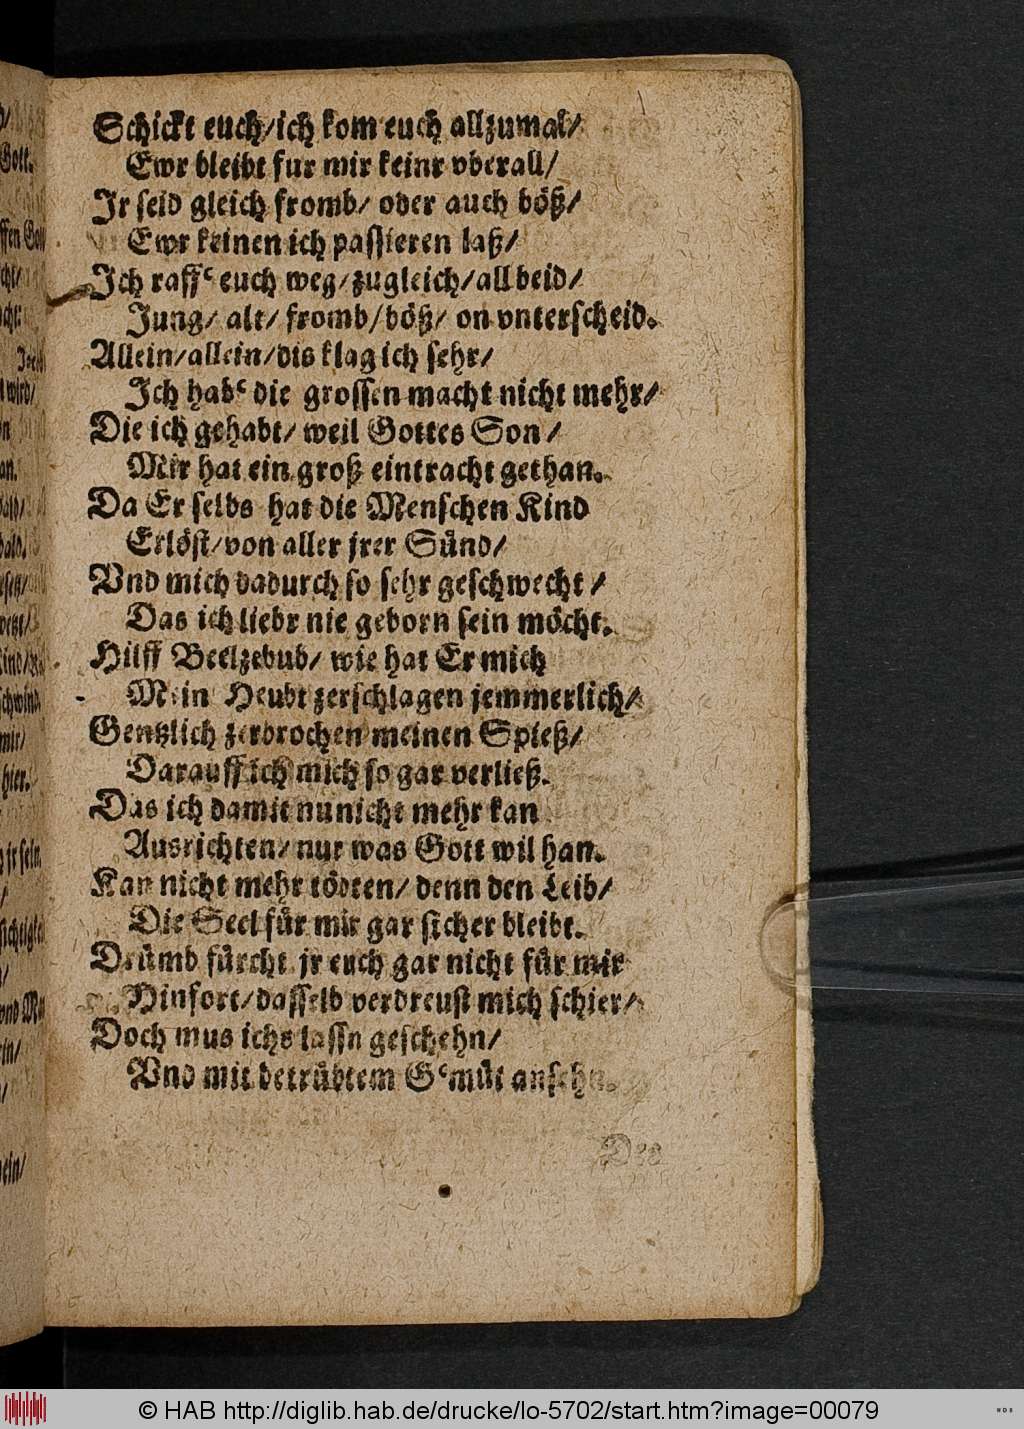 Schickt euch/ich kom euch allzumal/
Ewr bleibt fur mir keinr vberall/
Jr seid gleich fromb/ oder auch böß/
Ewr keinen ich passieren laß/
Jch raff' euch weg/zugleich/all beid/
Jung/ alt/ fromb/böß/ on vnterscheid.
Allein/allein/dis klag ich sehr/
Jch hab' die grossen macht nicht mehr/
Die ich gehabt/ weil Gottes Son/
Mir hat ein groß eintracht gethan.
Da Er selbs hat die Menschen Kind
Erlöst/von aller jrer Sünd/
Vnd mich dadurch so sehr geschwecht/
Das ich liebr nie geborn sein möcht.
Hilff Beelzebub/ wie hat Er mich
Mein Heubt zerschlagen jemmerlich/
Gentzlich zerbrochen meinen Spieß/
Darauff ich mich so gar verließ.
Das ich damit nu nicht mehr kan
Ausrichten/ nur was Gott wil han.
Kan nicht mehr tödten/ denn den Leib/
Die Seel für mir gar sicher bleibt.
Drümb fürcht jr euch gar nicht für mir
Hinfort/dasselb verdreust mich schier/
Doch mus ichs lassn geschehn/
Vnd mit betrübtem G'müt ansehn.
© HAB http://diglib.hab.de/drucke/lo-5702/start.htm?image=00079